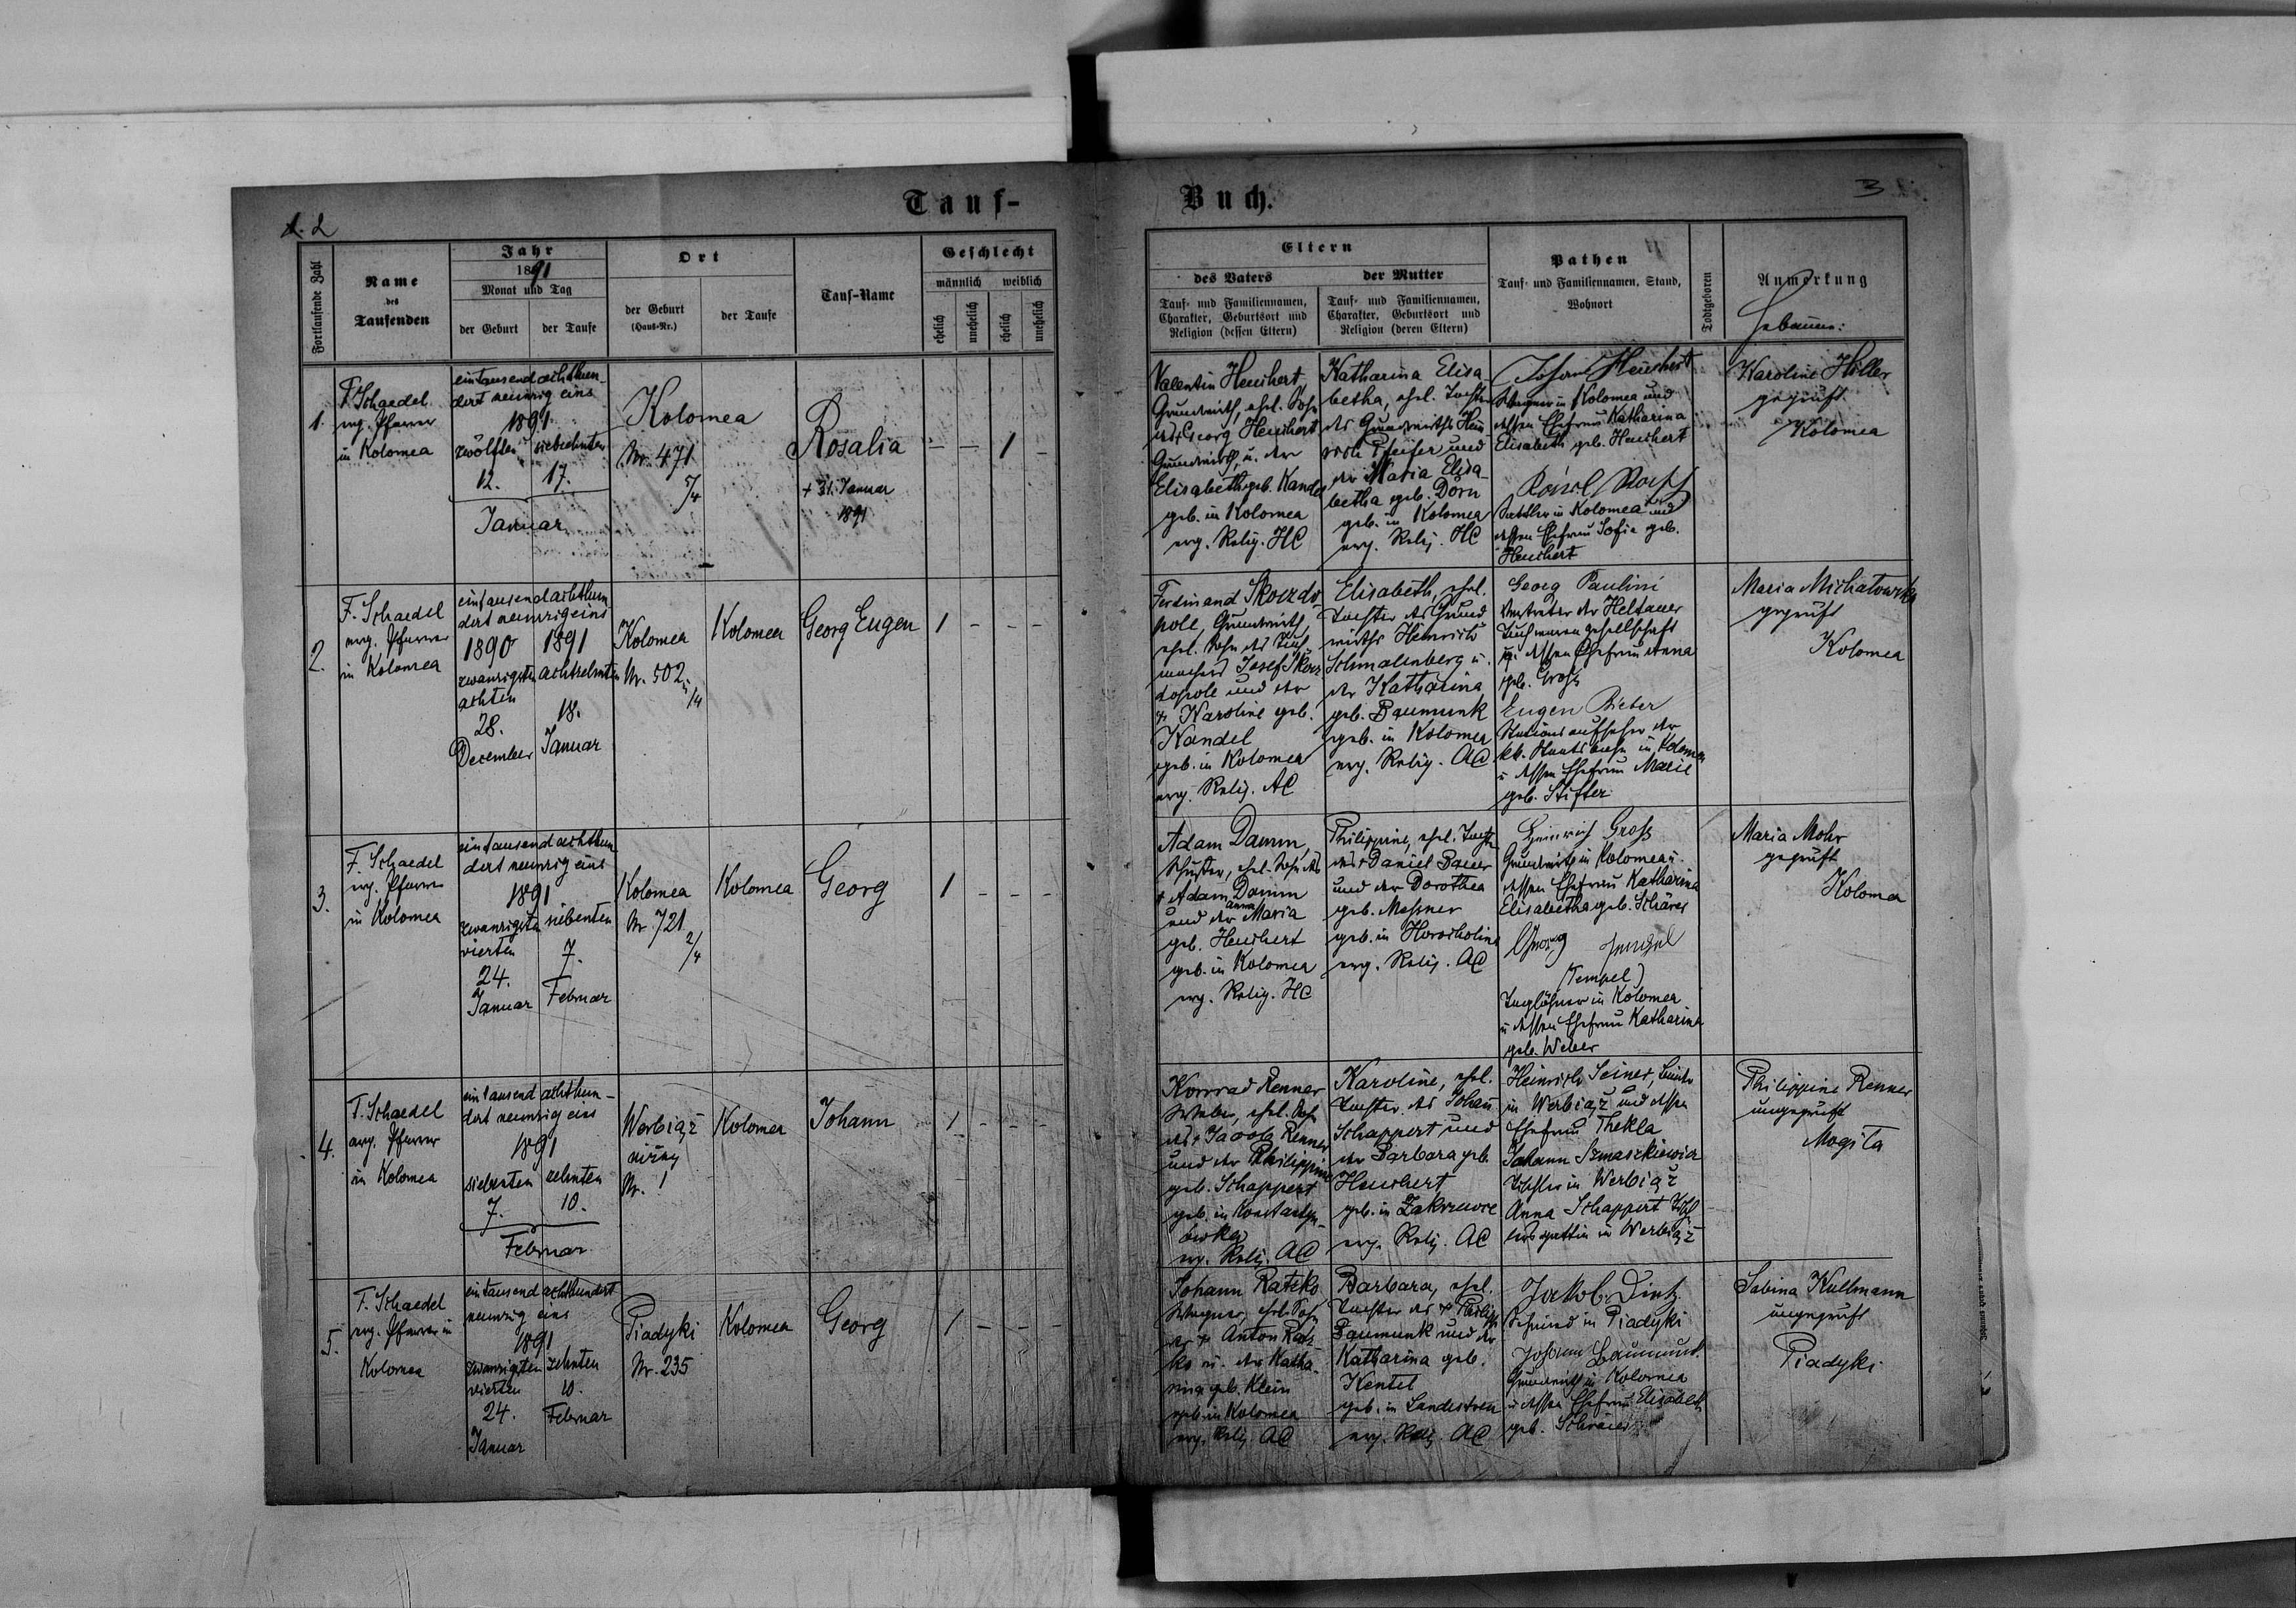 Tauf-
Buch.
1. 2
3
Fortlaufende Zahl
Name
des
Taufenden
Jahr
1891
Monat und Tag
der Geburt
der Taufe
Ort
der Geburt
(Haus-Nr.)
der Taufe
Tauf-Name
Geschlecht
männlich
weiblich
ehelich
unehelich
ehelich
unehelich
Eltern
des Vaters
Tauf- und Familiennamen,
Charakter, Geburtsort und
Religion (dessen Eltern)
der Mutter
Tauf- und Familiennamen,
Charakter, Geburtsort und
Religion (deren Eltern)
Pathen
Tauf- und Familiennamen, Stand,
Wohnort
Todtgeboren
Anmerkung
Hebamme:
1.
F. Schaedel
evg. Pfarrer
in Kolomea
eintausend achthun-
dert neunzig eins
1891
zwölften
12.
siebzehnten
17.
Januar
Kolomea
Nr. 471
5/4
Rosalia
+ 31. Januar
1891
— — 1 —
Valentin Heuchert
Grundwirth, ehel. Sohn
des Georg Heuchert
Grundwirth, u. der
Elisabeth geb. Kandel
geb. in Kolomea
evg. Relig. HC
Katharina Elisa-
betha, ehel. Tochter
des Grundwirths Hein-
rich Pfeifer und
der Maria Elisa-
betha geb. Dorn
geb. in Kolomea
evg. Relig. HC
Johann Heuchert
Wagner in Kolomea und
dessen Ehefrau Katharina
Elisabeth geb. Heuchert
Sattler in Kolomea und
dessen Ehefrau Sofia geb.
Heuchert
Karoline Hiller
geprüft
Kolomea
2.
F. Schaedel
evg. Pfarrer
in Kolomea
eintausend achthun-
dert neunzig eins
1890
zwanzigsten
achten
28.
December
1891
achtzehnten
18.
Januar
Kolomea
Nr. 502
/4
Kolomea
Georg Eugen
1 - - -
Ferdinand Skorzdo-
pole, Grundwirth
ehel. Sohn des Tuch-
machers Josef Skorz-
dopole und der
+ Karoline geb.
Kandel
geb. in Kolomea
evg. Relig. AC
Elisabeth, ehel.
Tochter des Grund-
wirths Heinrich
Schmalenberg u.
der Katharina
geb. Baumunk
geb. in Kolomea
evg. Relig. AC
Georg Paulini
Vertreter der Heltauer
Tuchwaren gesellschaft
u. dessen Ehefrau Anna
geb. Gross
Eugen Bieber
Stationsaufseher der
kk. Staatsbahn in Kolomea
u. dessen Ehefrau Marie
geb. Stifter
Maria Michałowska
geprüft
Kolomea
3.
F. Schaedel
evg. Pfarrer
in Kolomea
eintausend achthun-
dert neunzig eins
1891
zwanzigsten
vierten
24.
Januar
siebenten
7.
Februar
Kolomea
Nr. 721
2/4
Kolomea
Georg
1 - - -
Adam Damm,
Schuster, ehel. Sohn des
+ Adam Damm
und der Anna Maria
geb. Heuchert
geb. in Kolomea
evg. Relig. HC
Philippine, ehel. Tochter
des + Daniel Bauer
und der Dorothea
geb. Messner
geb. in Horocholina
evg. Relig. AC
Heinrich Gross
Grundwirth in Kolomea u.
dessen Ehefrau Katharina
Elisabetha geb. Schärer
Georg
(Tempel)
Taglöhner in Kolomea
u. dessen Ehefrau Katharina
geb. Weber
Maria Mohr
geprüft
Kolomea
4.
F. Schaedel
evg. Pfarrer
in Kolomea
eintausend achthun-
dert neunzig eins
1891
siebenten
7.
zehnten
10.
Februar
Werbiąż
niżny
Nr. 1
Kolomea
Johann
1 - - -
Konrad Renner
Weber, ehel. Sohn
des + Jacob Renner
und der Philippine
geb. Schappert
geb. in Konstantyn-
ówka
evg. Relig. AC
Karoline, ehel.
Tochter des Johann
Schappert und
der Barbara geb.
Heuchert
geb. in Zakrzewce
evg. Relig. AC
Heinrich Seiner,
in Werbiąż und dessen
Ehefrau Thekla
Johann Szmaszkiewicz
Tischler in Werbiąż
Anna Schappert Tisch-
lersgattin in Werbiąż
Philippine Renner
ungeprüft
Mogiła
5.
F. Schaedel
evg. Pfarrer in
Kolomea
eintausend achthundert
neunzig eins
1891
zwanzigsten
vierten
24.
Januar
zehnten
10.
Februar
Piadyki
Nr. 235
Kolomea
Georg
1 - - -
Johann Ratzko
Wagner, ehel. Sohn
des + Anton Ratz-
ko u. der Katha-
rina geb. Klein
geb. in Kolomea
evg. Relig. AC
Barbara, ehel.
Tochter des + Philipp
Baumunk und der
Katharina geb.
Kentel
geb. in Landestreu
evg. Relig. AC
Jakob Dintz
Schmied in Piadyki
Johann Baumunk
Grundwirth in Kolomea
u. dessen Ehefrau Elisabeth
geb. Schrärer
Sabina Kullmann
ungeprüft
Piadyki